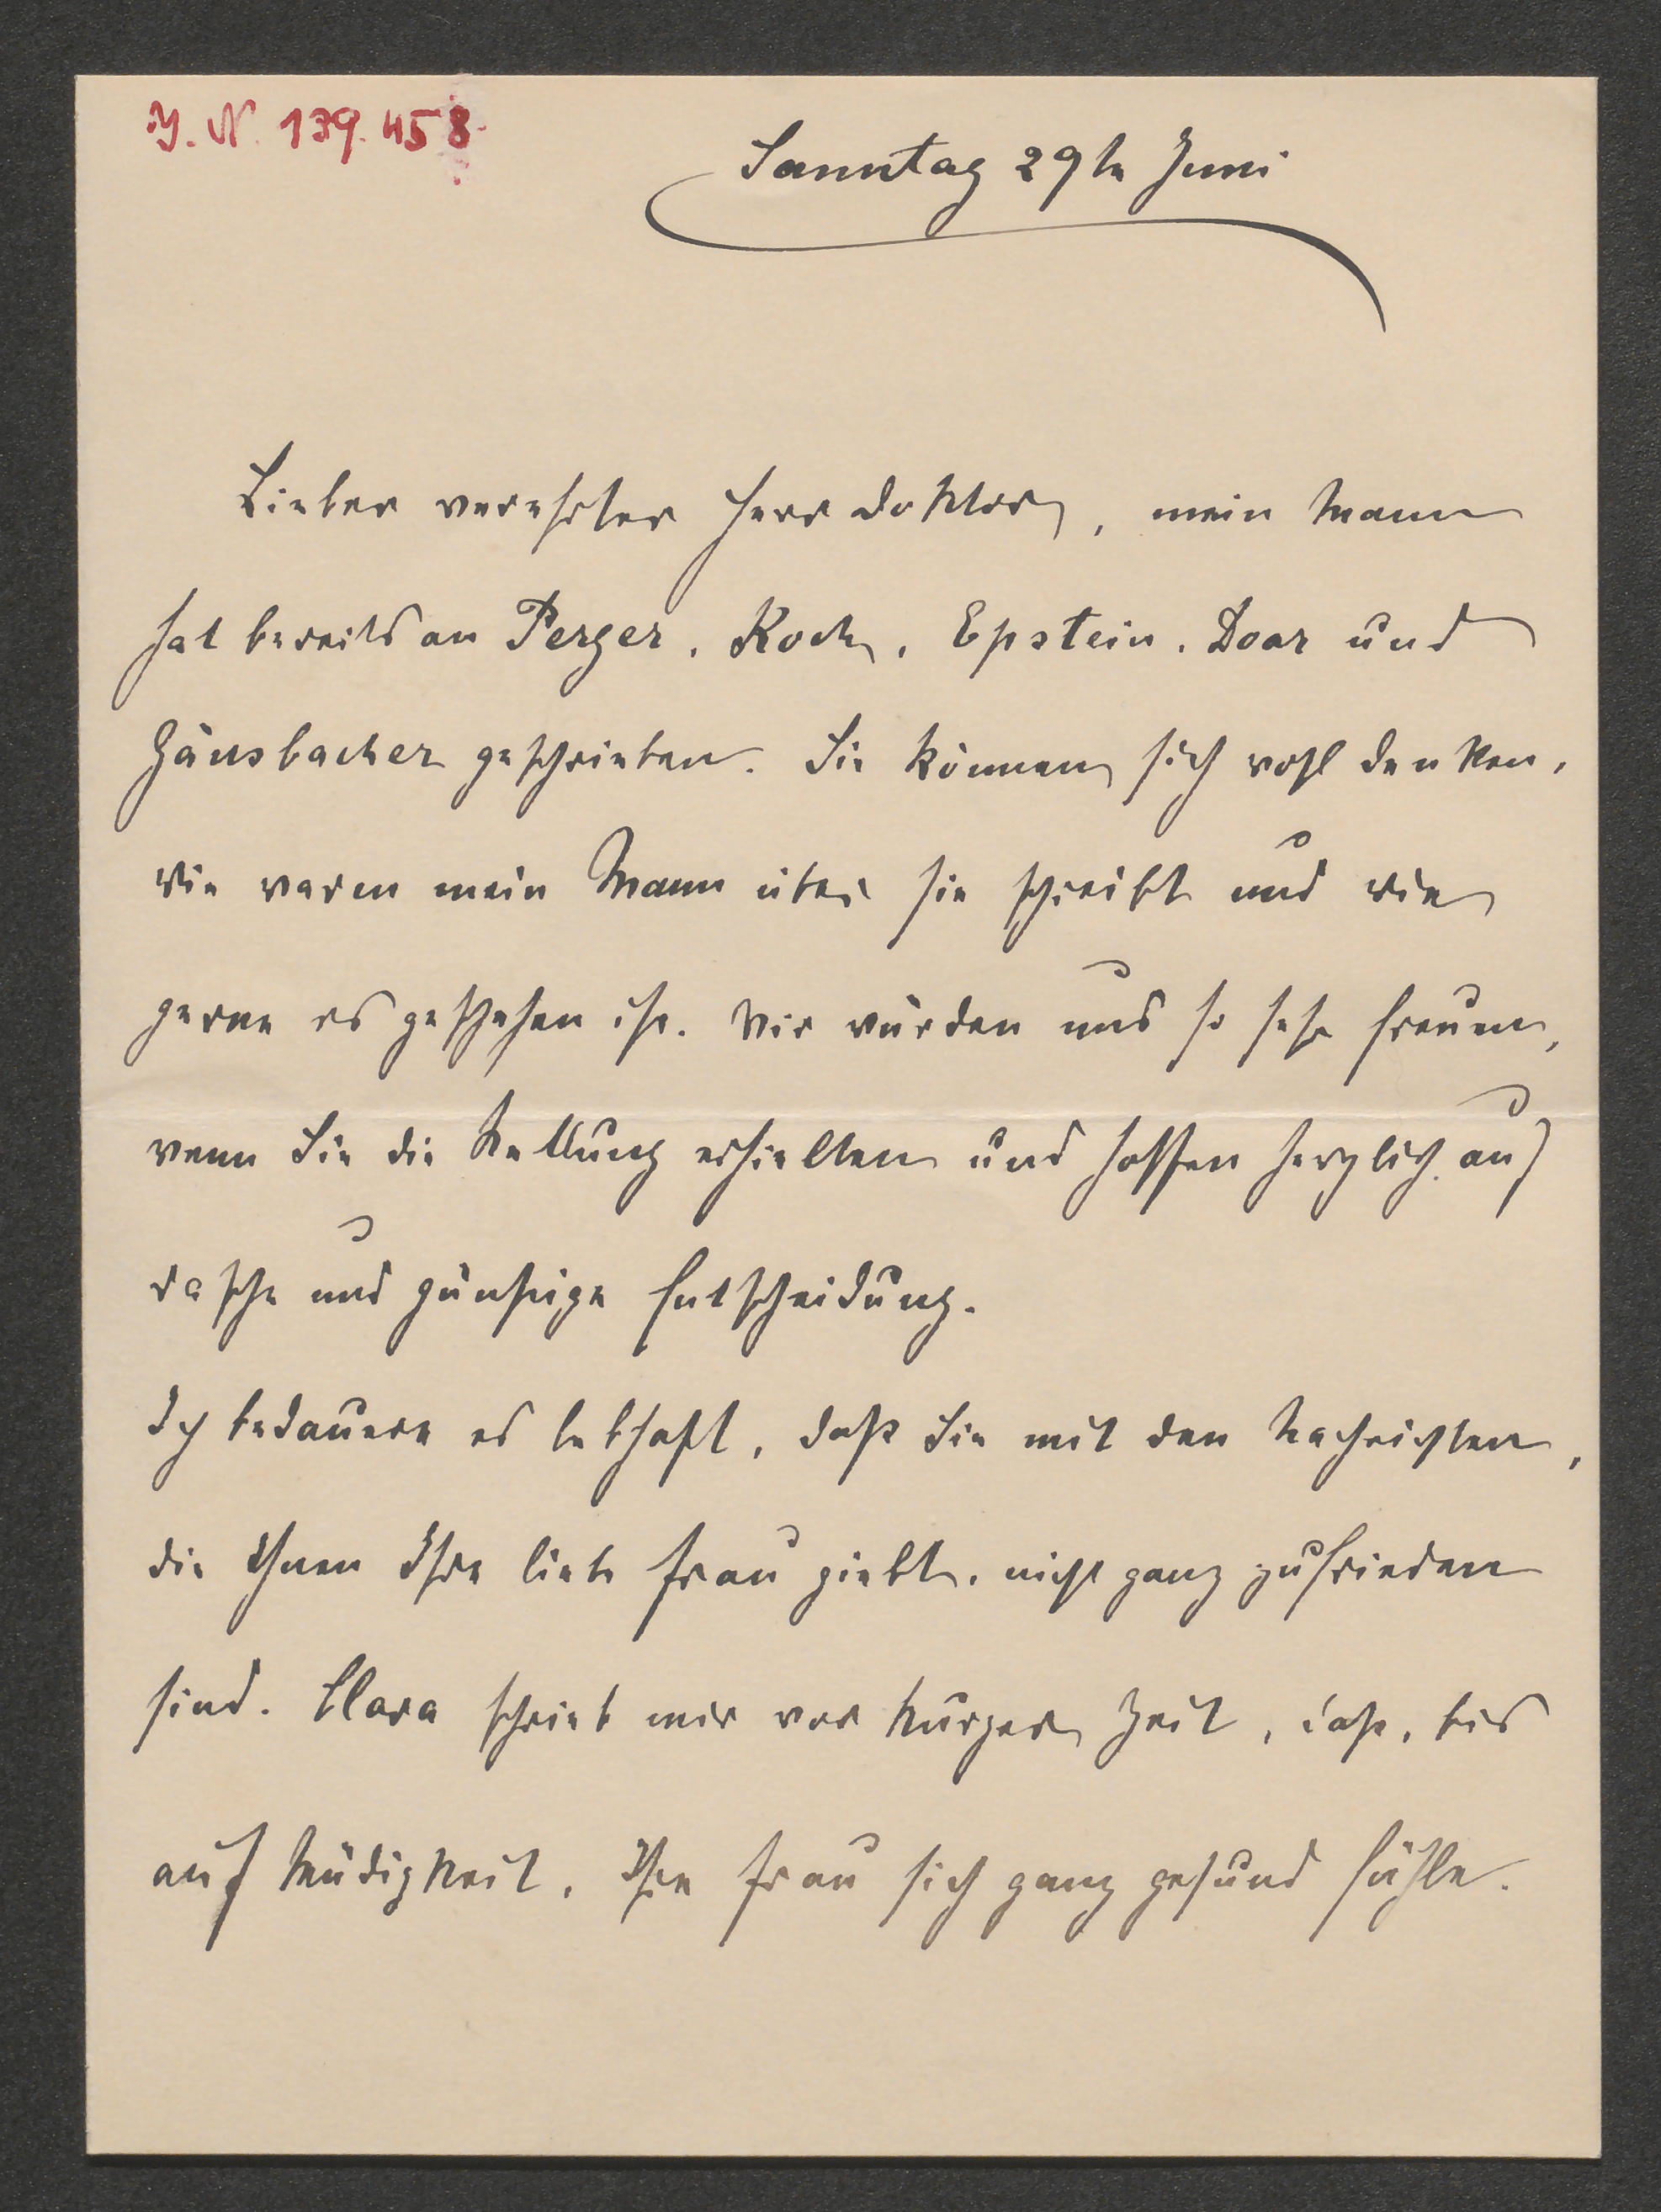 I. N. 139.458
Sonntag 29te Juni
Lieber verehrter Herr Doktor, mein Mann
hat bereits an Perger, Koch, Epstein, Door und
Gänsbacher geschrieben. Sie können sich wohl denken,
wie warm mein Mann über Sie schreibt und wie
gerne es geschehen ist. Wir würden uns so sehr freuen,
wenn Sie die Stellung erhielten und hoffen herzlich auf
rasche und günstige Entscheidung.
Ich bedauere es lebhaft, daß Sie mit den Nachrichten,
die Ihnen Ihre liebe Frau giebt, nicht ganz zufrieden
sind. Clara schrieb mir vor kurzer Zeit, daß, bis
auf Müdigkeit, Ihre Frau sich ganz gesund fühle.